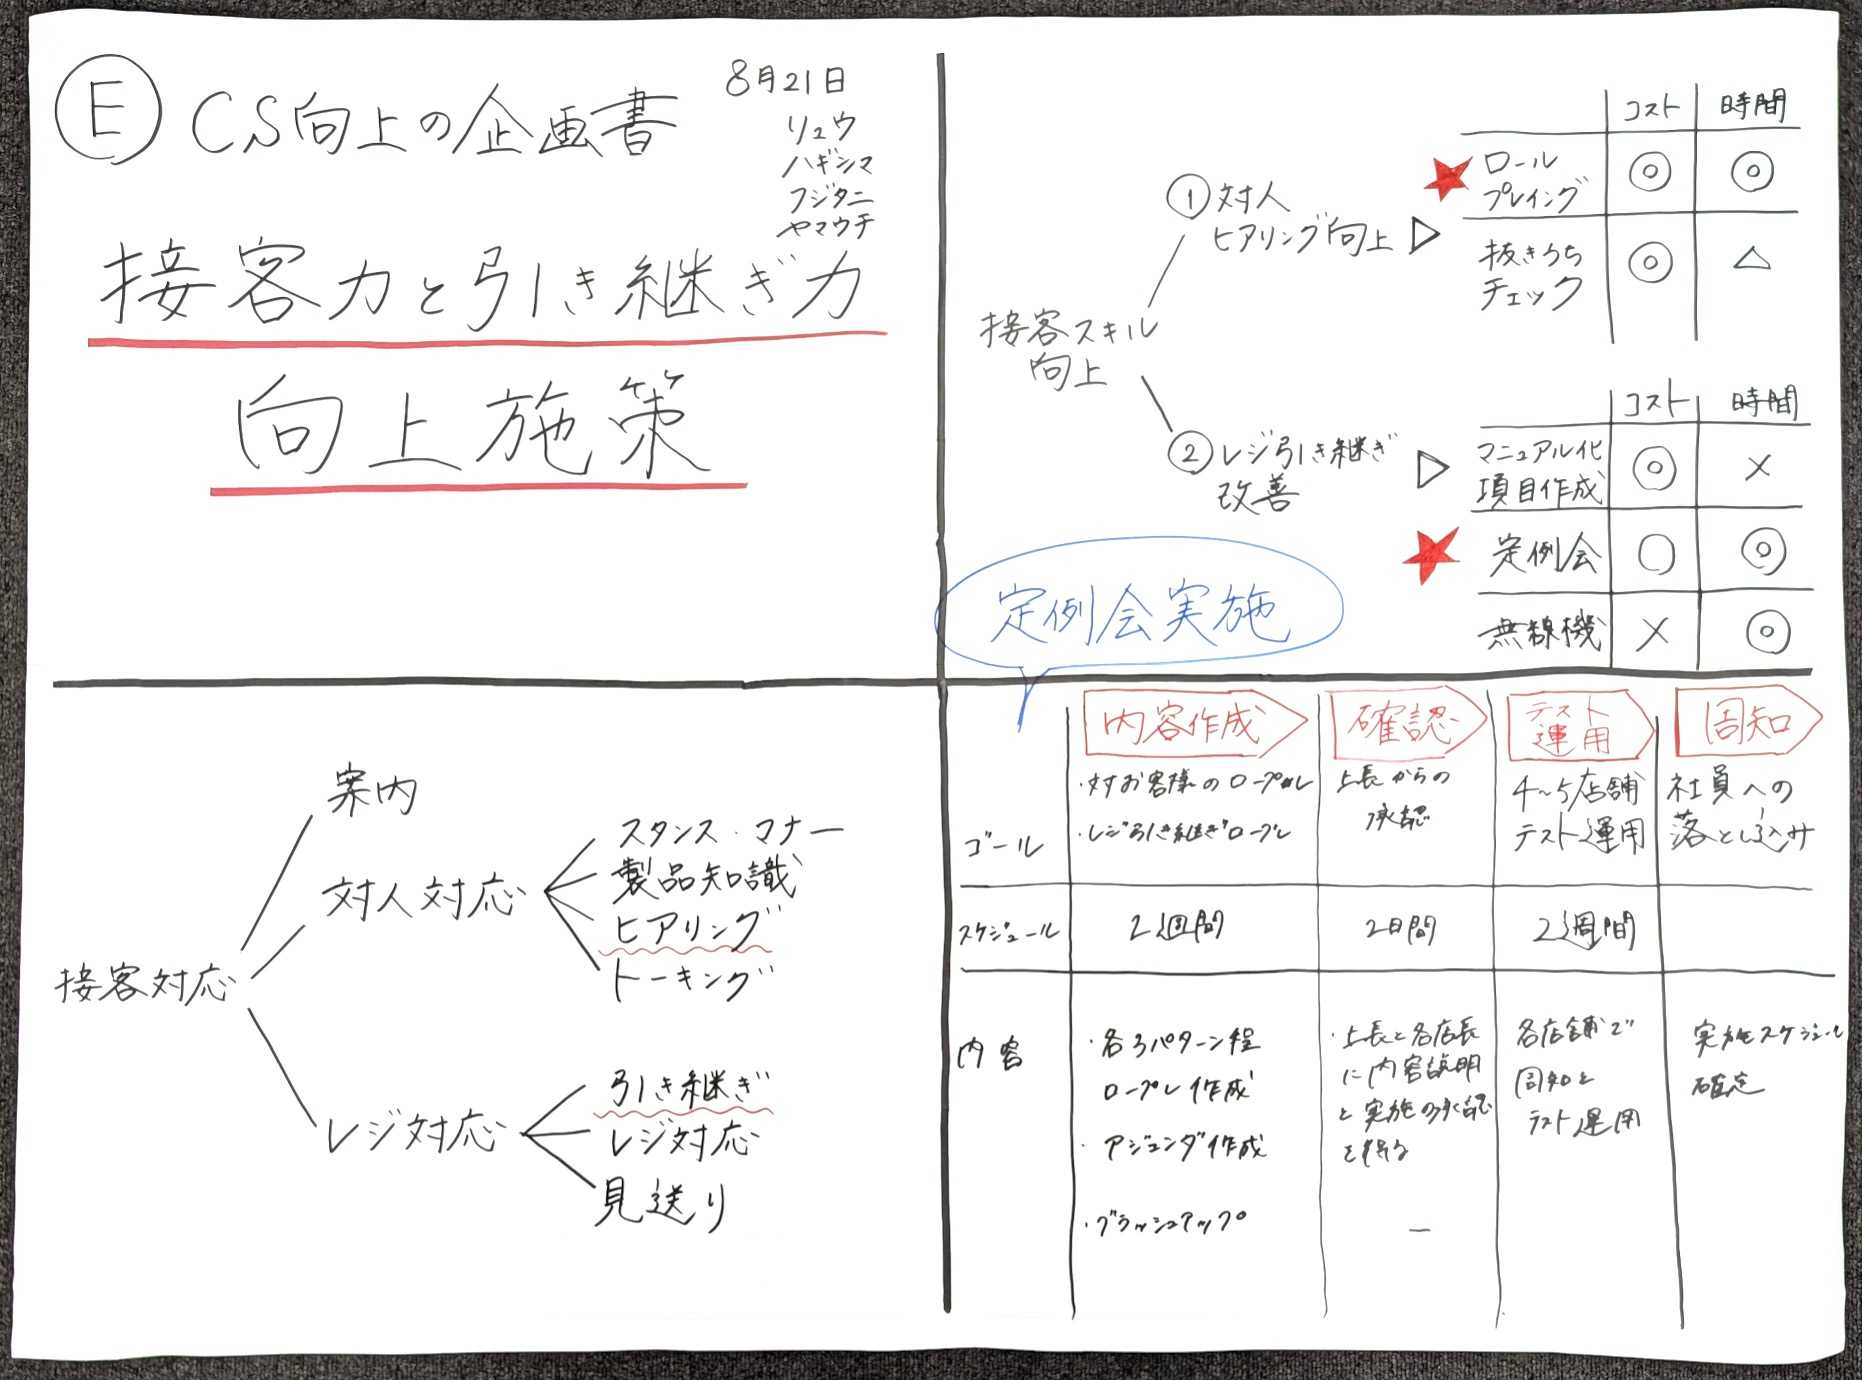 E CS向上の企画書
8月21日
リュウ
ハギシマ
フジタニ
ヤマウチ
接客力と引き継ぎ力
向上施策
接客スキル
向上
① 対人
ヒアリング向上 ▷
コスト 時間
★ ロール
プレイング ◎ ◎
抜きうち
チェック ◎ △
② レジ引き継ぎ
改善 ▷
コスト 時間
マニュアル化
項目作成 ◎ ×
★ 定例会 ○ ◎
無線機 × ◎
接客対応
案内
対人対応
スタンス・マナー
製品知識
ヒアリング
トーキング
レジ対応
引き継ぎ
レジ対応
見送り
定例会実施
内容作成 確認 テスト
運用 周知
ゴール
・対お客様のロープレ
・レジ引き継ぎロープレ
上長からの
承認
4~5店舗
テスト運用
社員への
落とし込み
スケジュール 2週間 2日間 2週間
内容
・各3パターン程
ロープレ作成
・アジェンダ作成
・ブラッシュアップ
・上長と各店長
に内容説明
と実施の承認
を得る
—
各店舗で
周知と
テスト運用
実施スケジュール
確定